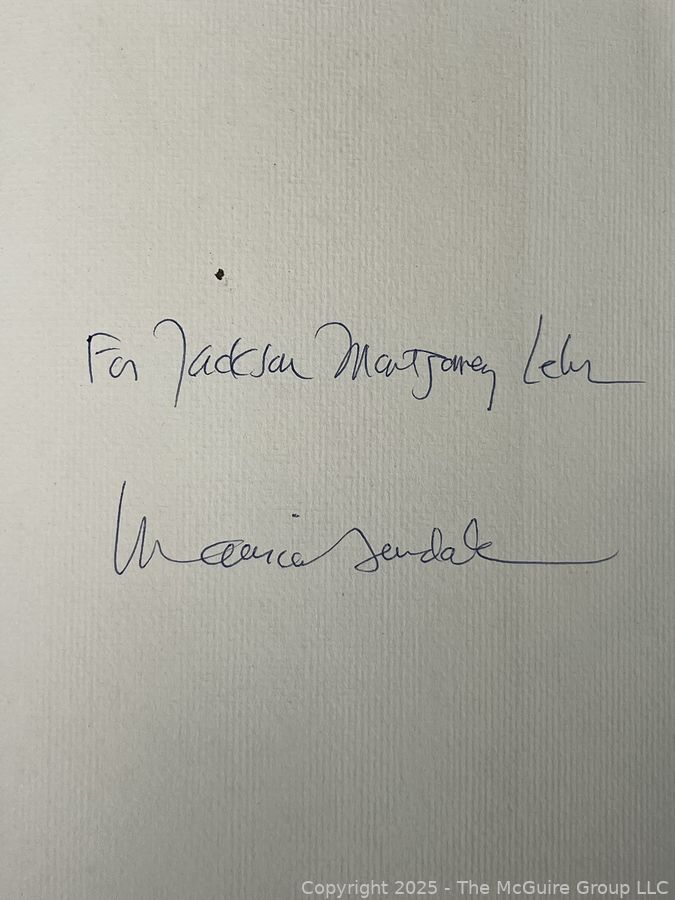 For Jackson Montgomery
Maurice Sendak
Copyright 2025 - The McGuire Group LLC